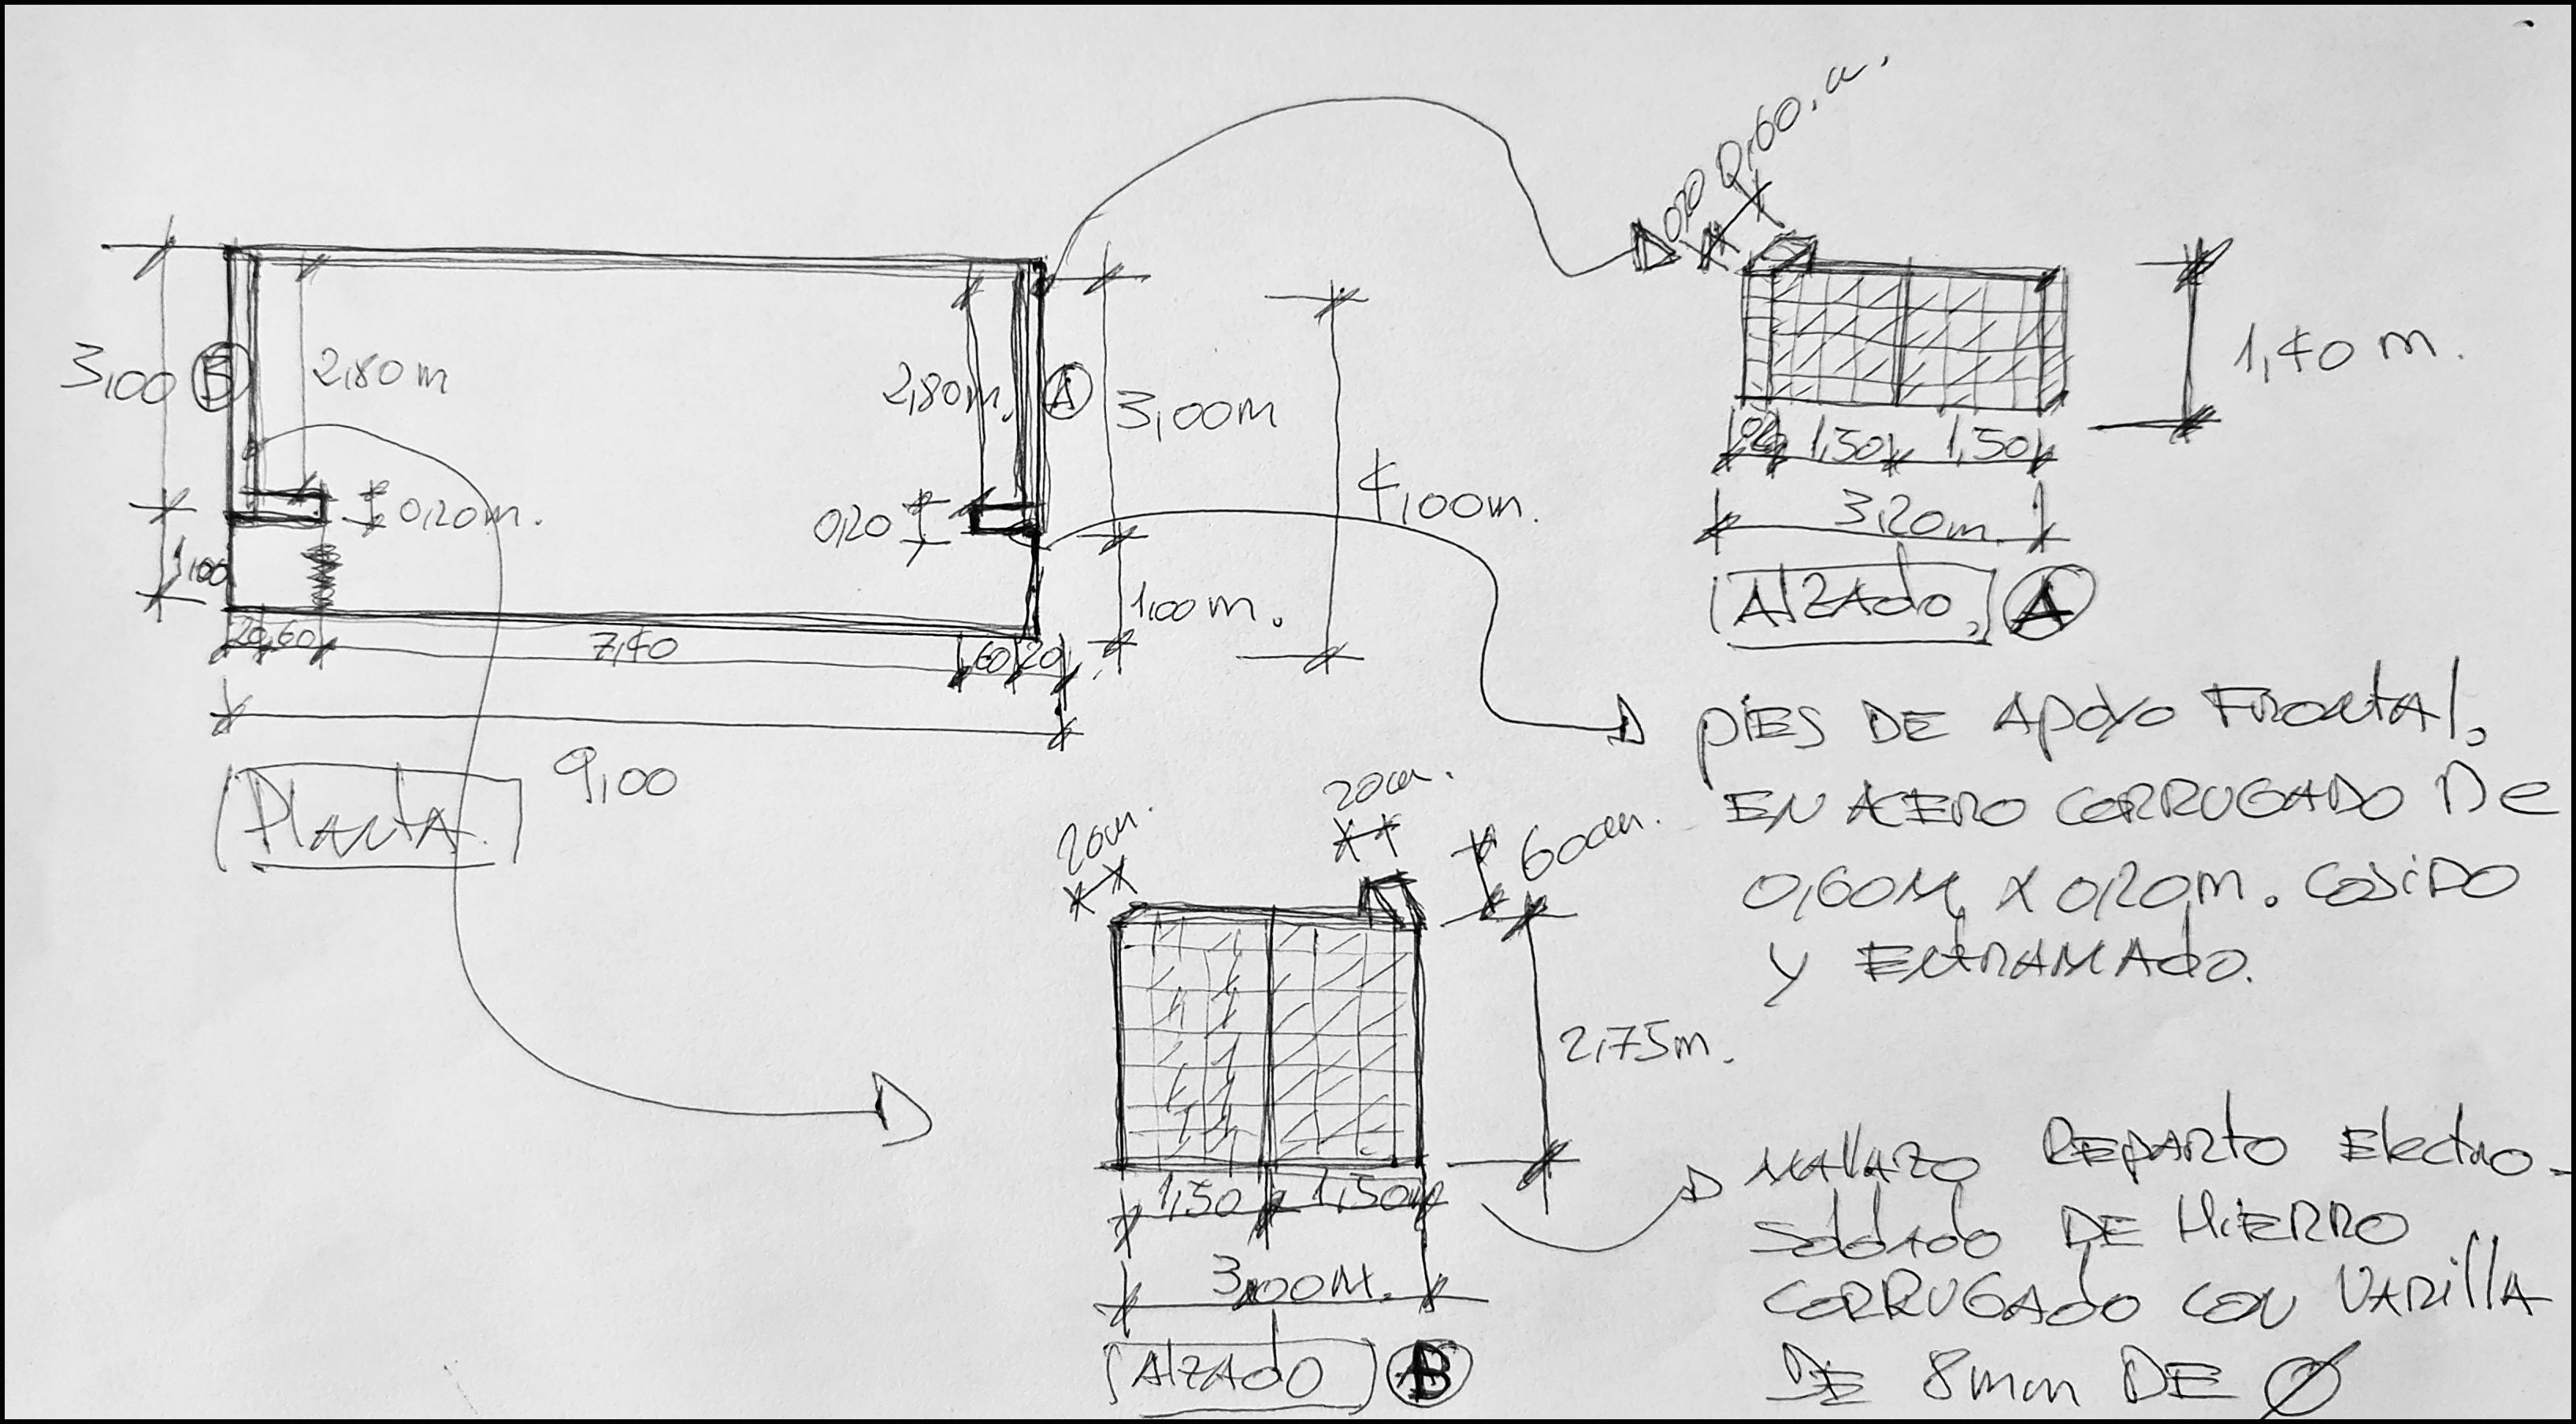 0,20 0,60.m.
3,00 B
2,80 m
2,80m.
A
3,00m
4,00m.
0,20m.
0,20
1,00
1,00 m.
20 60
7,40
60 20
9,00
Planta.
1,40 m.
0,20 1,50 1,50
3,20m.
Alzado. A
PIES DE APOYO FRONTAL.
EN ACERO CORRUGADO DE
0,60M X 0,20m. COSIDO
Y ENTRAMADO.
20cm.
20cm.
60cm.
2,75m.
1,50 1,50m
3,00M.
Alzado B
MALLAZO REPARTO Electro-
Soldado DE HIERRO
CORRUGADO CON VARILLA
DE 8mm DE Ø